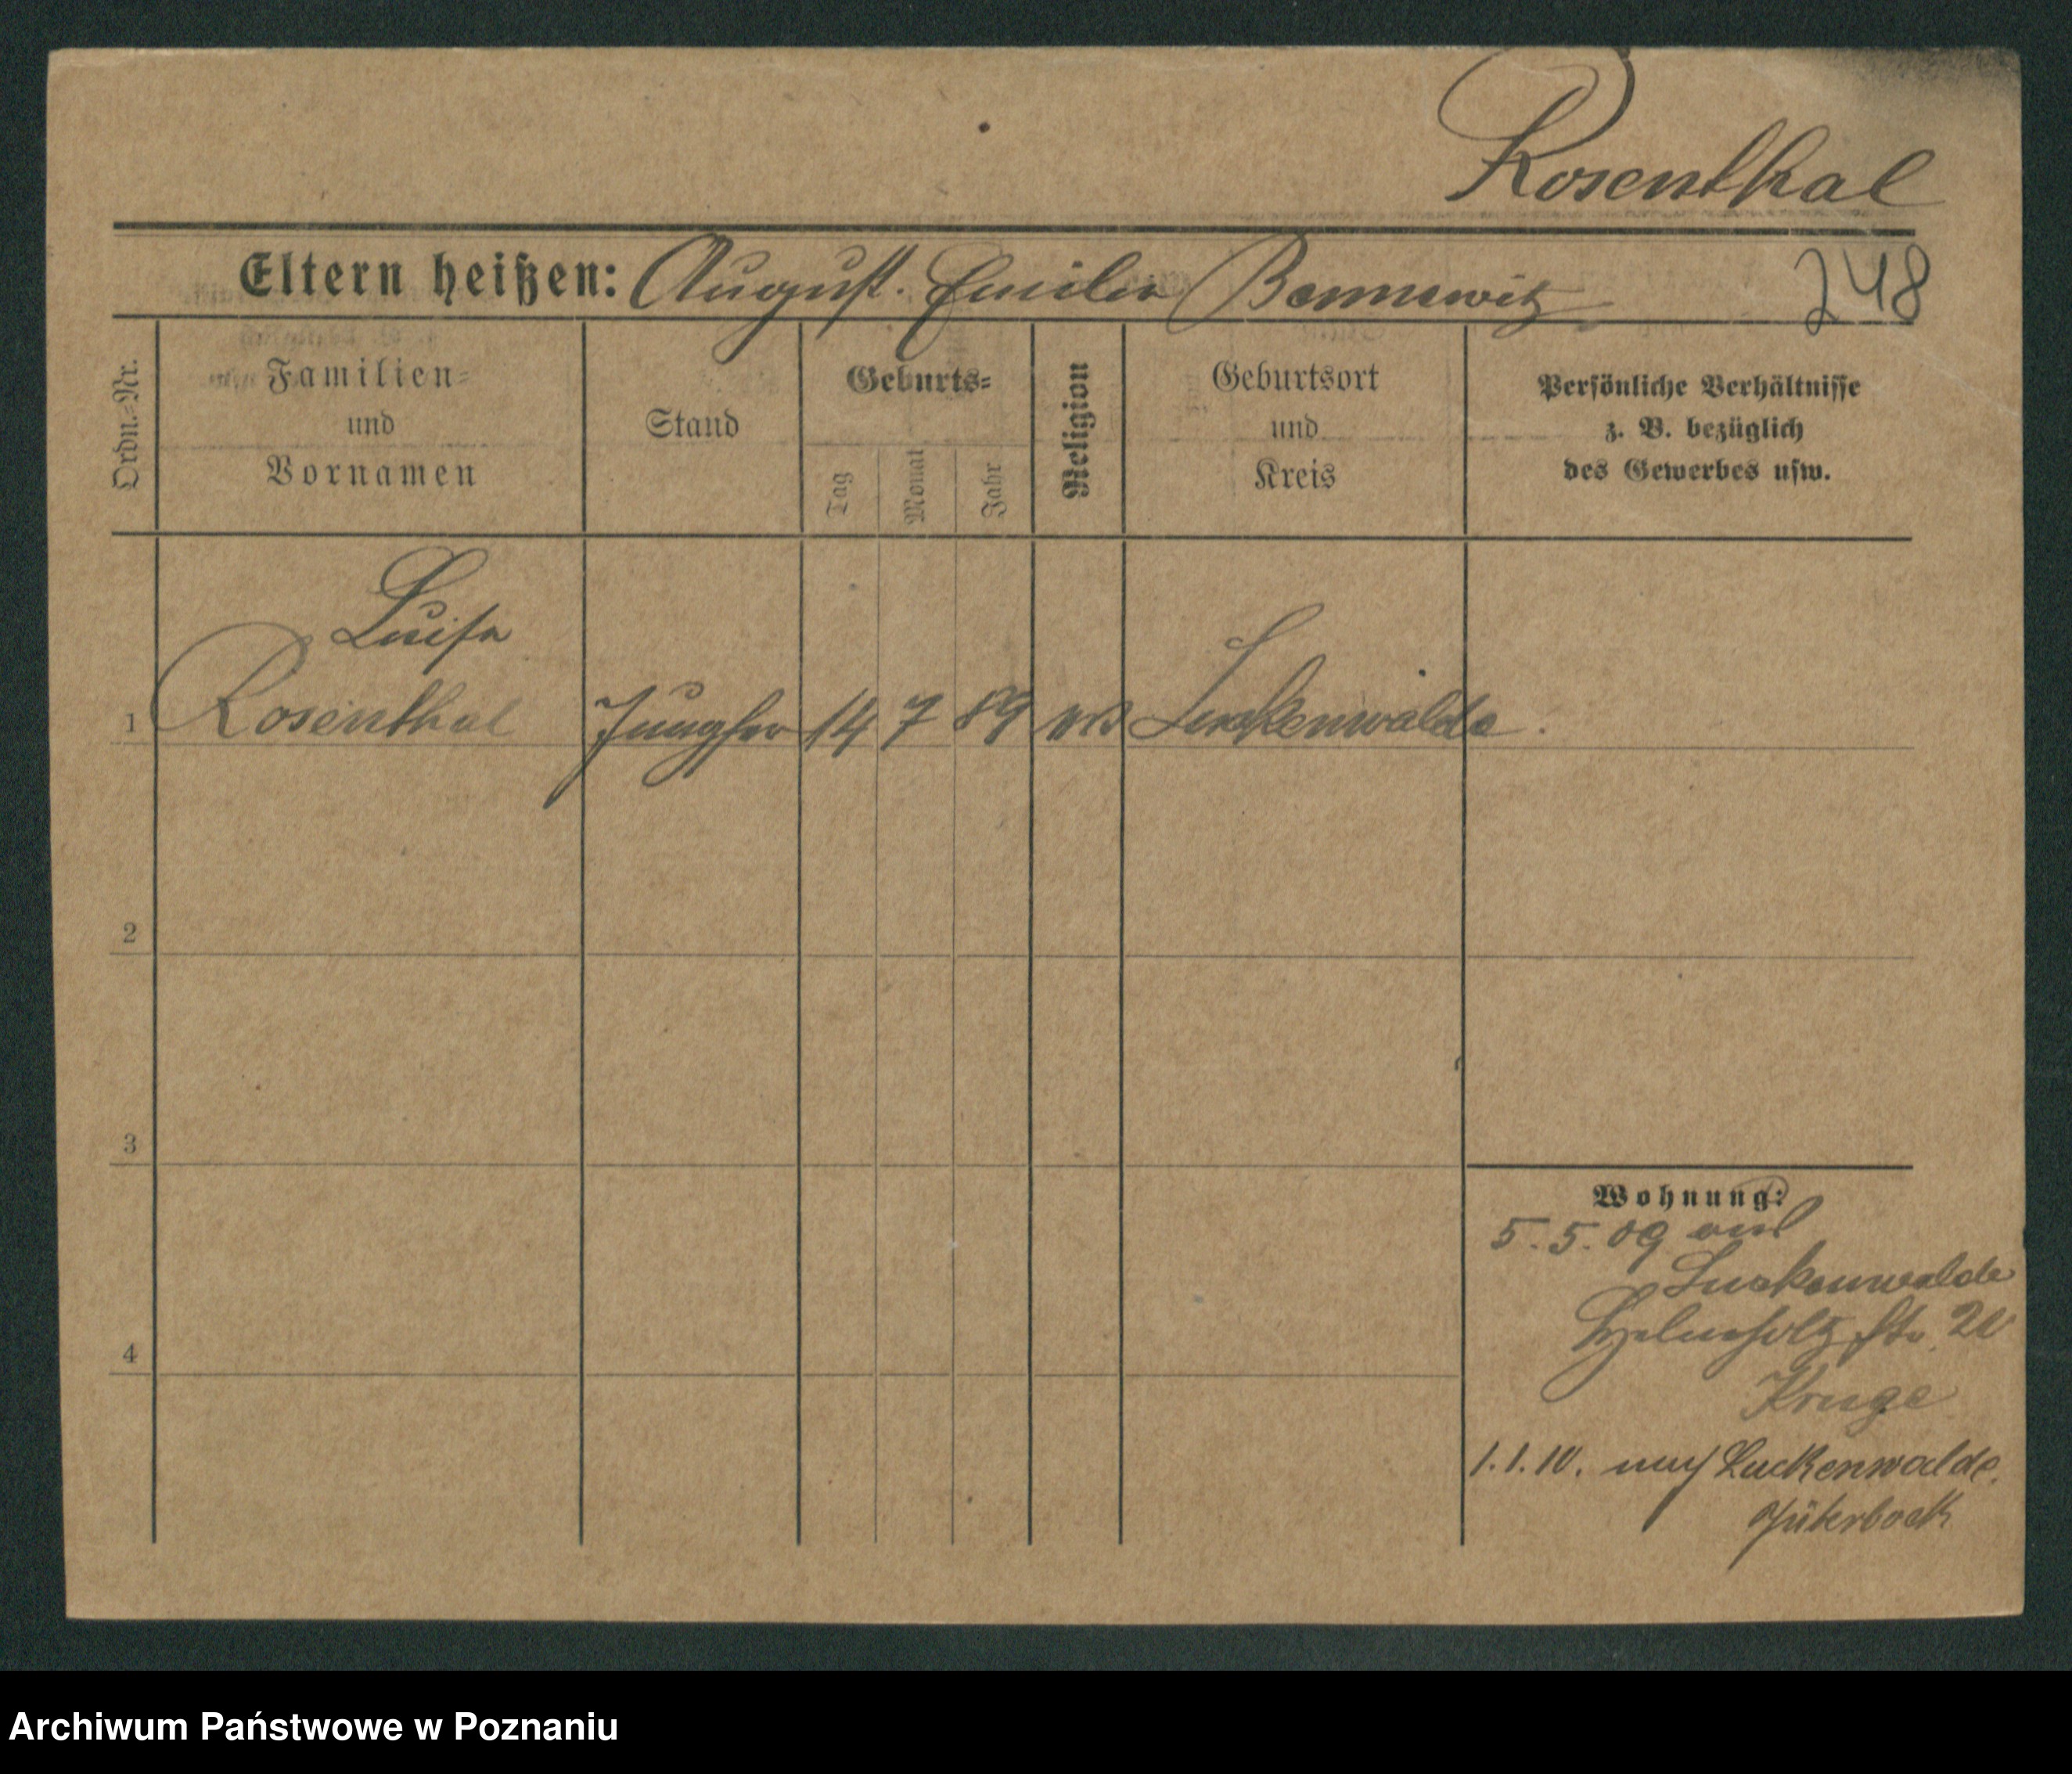 Rosenthal
Eltern heißen: August. Emilie Bennewitz 248
Ordn.=Nr.
Familien=
und
Vornamen
Stand
Geburts=
Tag
Monat
Jahr
Religion
Geburtsort
und
Kreis
Persönliche Verhältnisse
z. B. bezüglich
des Gewerbes usw.
Luise
1 Rosenthal Jungfer 14 7 89 Luckenwalde.
2
3
4
Wohnung:
5.5.09 aus
Luckenwalde
Helmholtz str.
Kruge
1.1.10. nach Luckenwalde.
Jüterbock
Archiwum Państwowe w Poznaniu